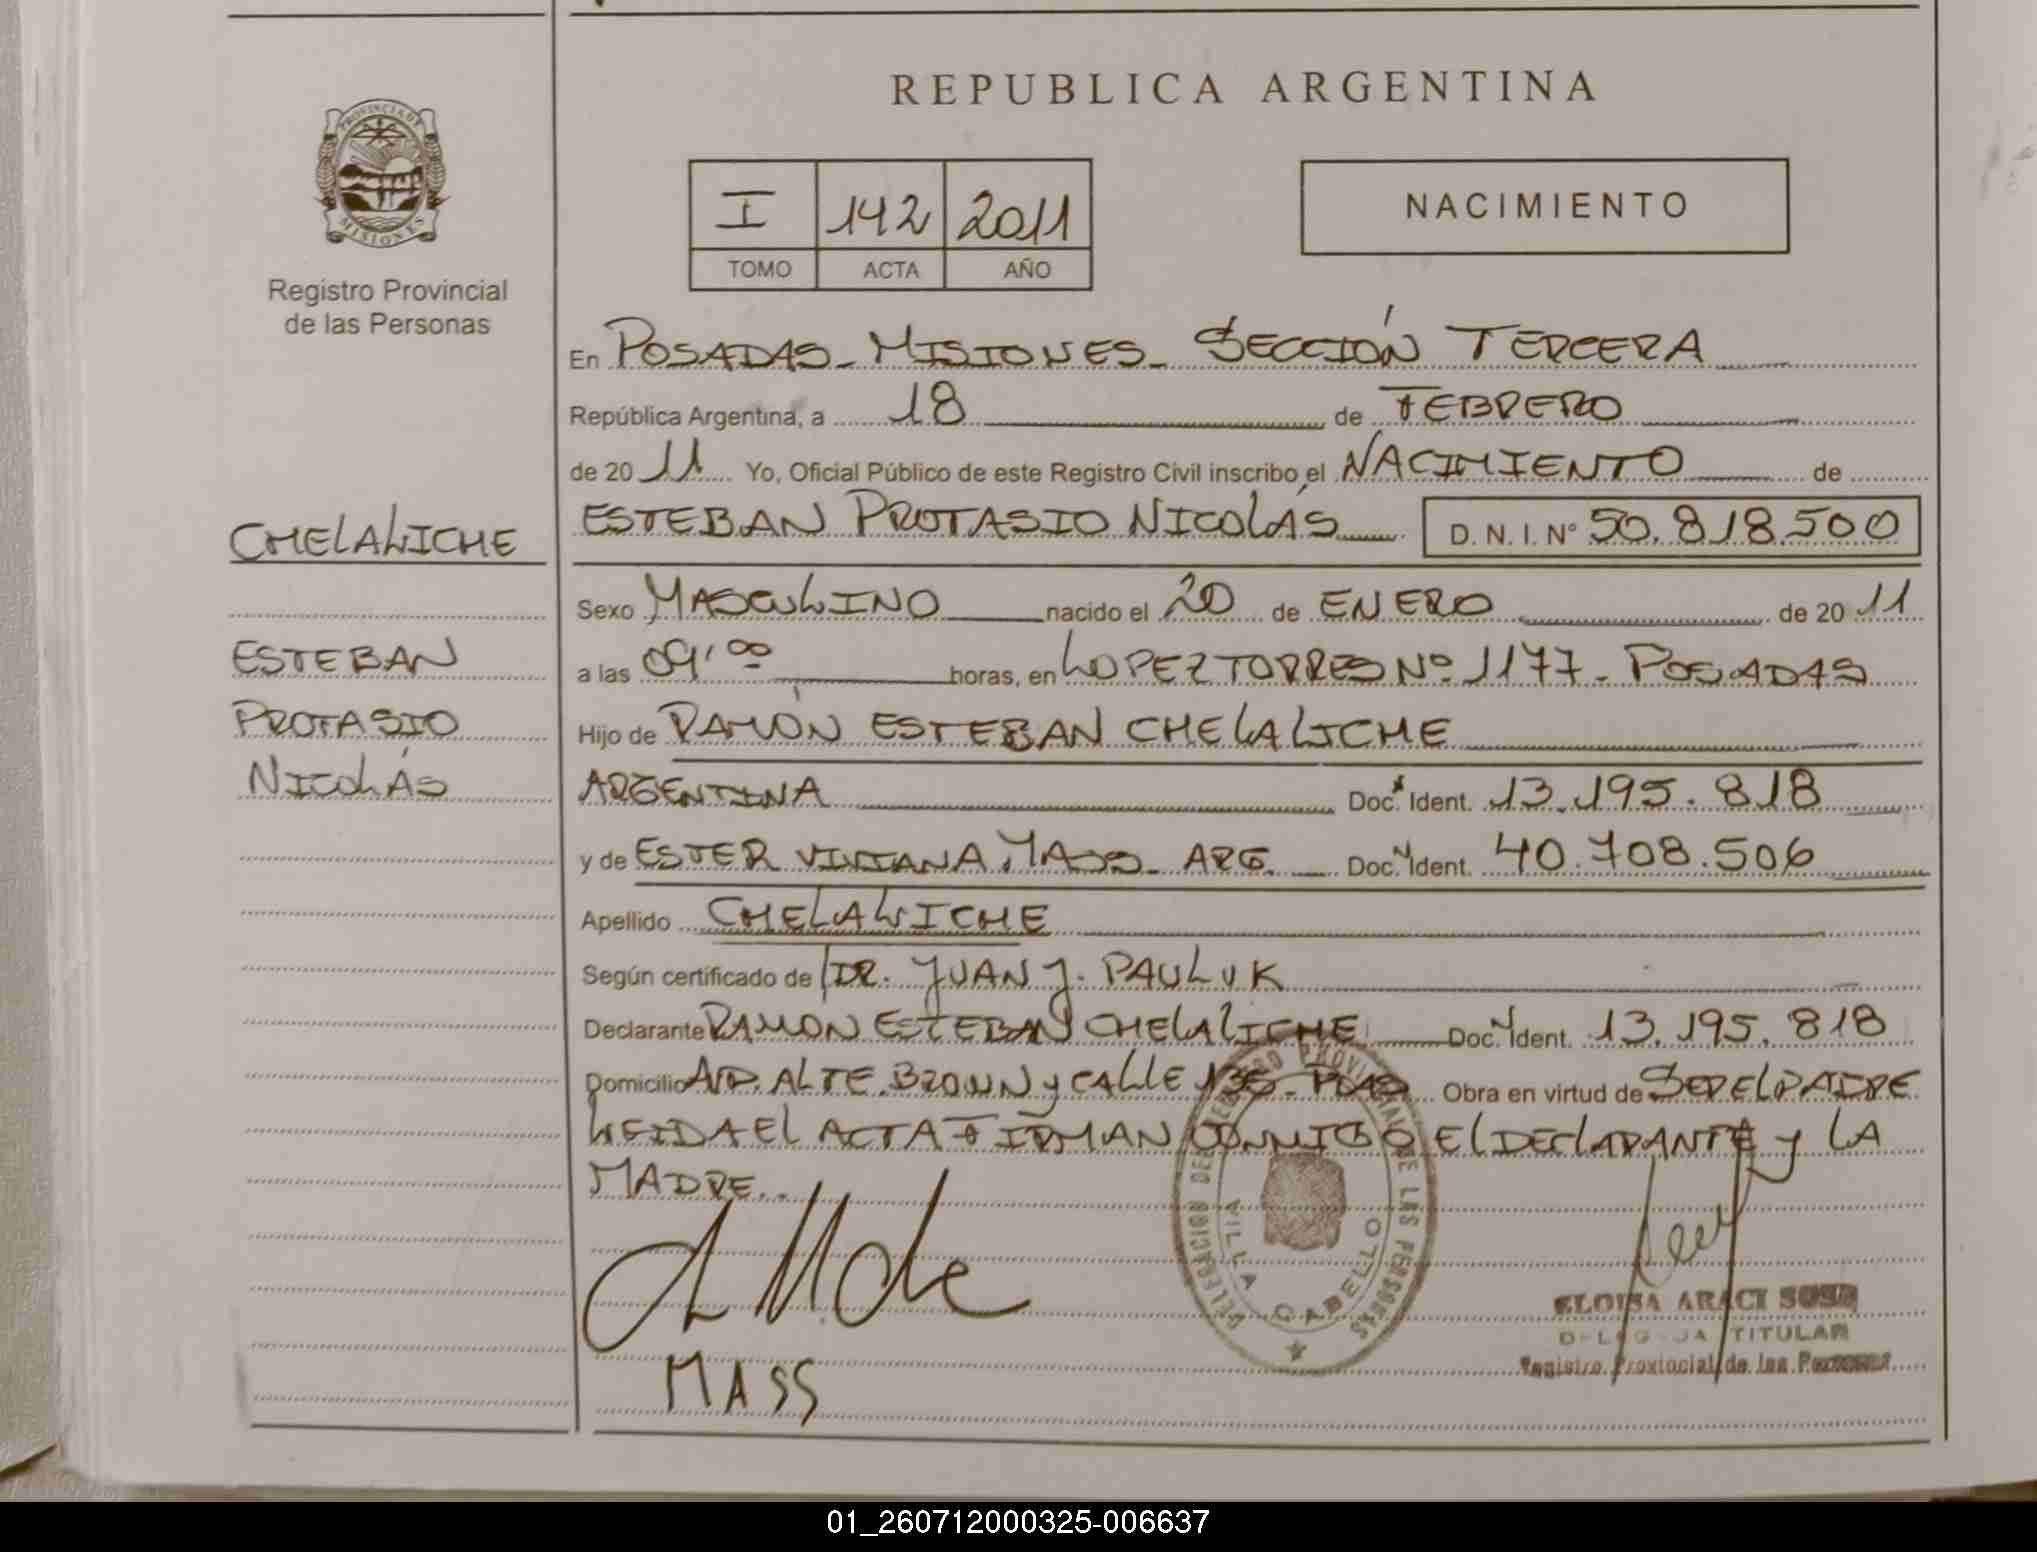 REPUBLICA ARGENTINA
PROVINCIA DE
MISIONES
Registro Provincial
de las Personas
I 142 2011
TOMO ACTA AÑO
NACIMIENTO
En POSADAS - MISIONES - SECCIÓN TERCERA
República Argentina, a 18 de FEBRERO
de 20 11 Yo, Oficial Público de este Registro Civil inscribo el NACIMIENTO de
ESTEBAN PROTASIO NICOLÁS D. N. I. Nº 50.818.500
CHELALICHE
ESTEBAN
PROTASIO
NICOLÁS
Sexo MASCULINO nacido el 20 de ENERO de 20 11
a las 09'00 horas, en LOPEZ TORRES Nº 1177 - POSADAS
Hijo de RAMÓN ESTEBAN CHELALICHE
ARGENTINA Doc. Ident. 13.195.818
y de ESTER VIVIANA MASS - ARG. Doc. Ident. 40.708.506
Apellido CHELALICHE
Según certificado de DR. JUAN J. PAULUK
Declarante RAMON ESTEBAN CHELALICHE Doc. Ident. 13.195.818
Domicilio AVD. ALTE. BROWN y CALLE 135 - PDAS Obra en virtud de SER EL PADRE
LEIDA EL ACTA FIRMAN CONMIGO EL DECLARANTE y LA
MADRE.
MASS
DELEGACION DEL REGISTRO PROVINCIAL DE LAS PERSONAS
VILLA CABELLO
ELOISA ARACI SOSA
DELEGADA TITULAR
Registro Provincial de las Personas
01_260712000325-006637